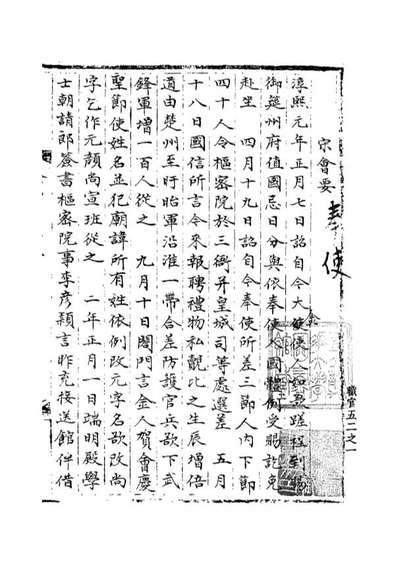 宋會要 奉使
淳熙元年正月七日詔自今大使使人如熟蹉程到
御筵州府值國忌日分與依奉使人國體例受賜訖免
赴坐 四月十九日詔自今奉使所差三節人内下節
四十人令樞密院於三衙并皇城司等處選差 五月
十八日國信所言今來報聘禮物私覿比之生辰增倍
道由楚州至盱眙軍沿淮一帶合差防護官兵欲下武
鋒軍增一百人從之 九月十日閤門言金人賀會慶
聖節使姓名並犯廟諱所有姓依例改元字名欲改尚
字乞作元顔尚宣班從之 二年正月一日端明殿學
士朝請郎簽書樞密院事李彦穎言昨充接送館伴借
職官五二之一